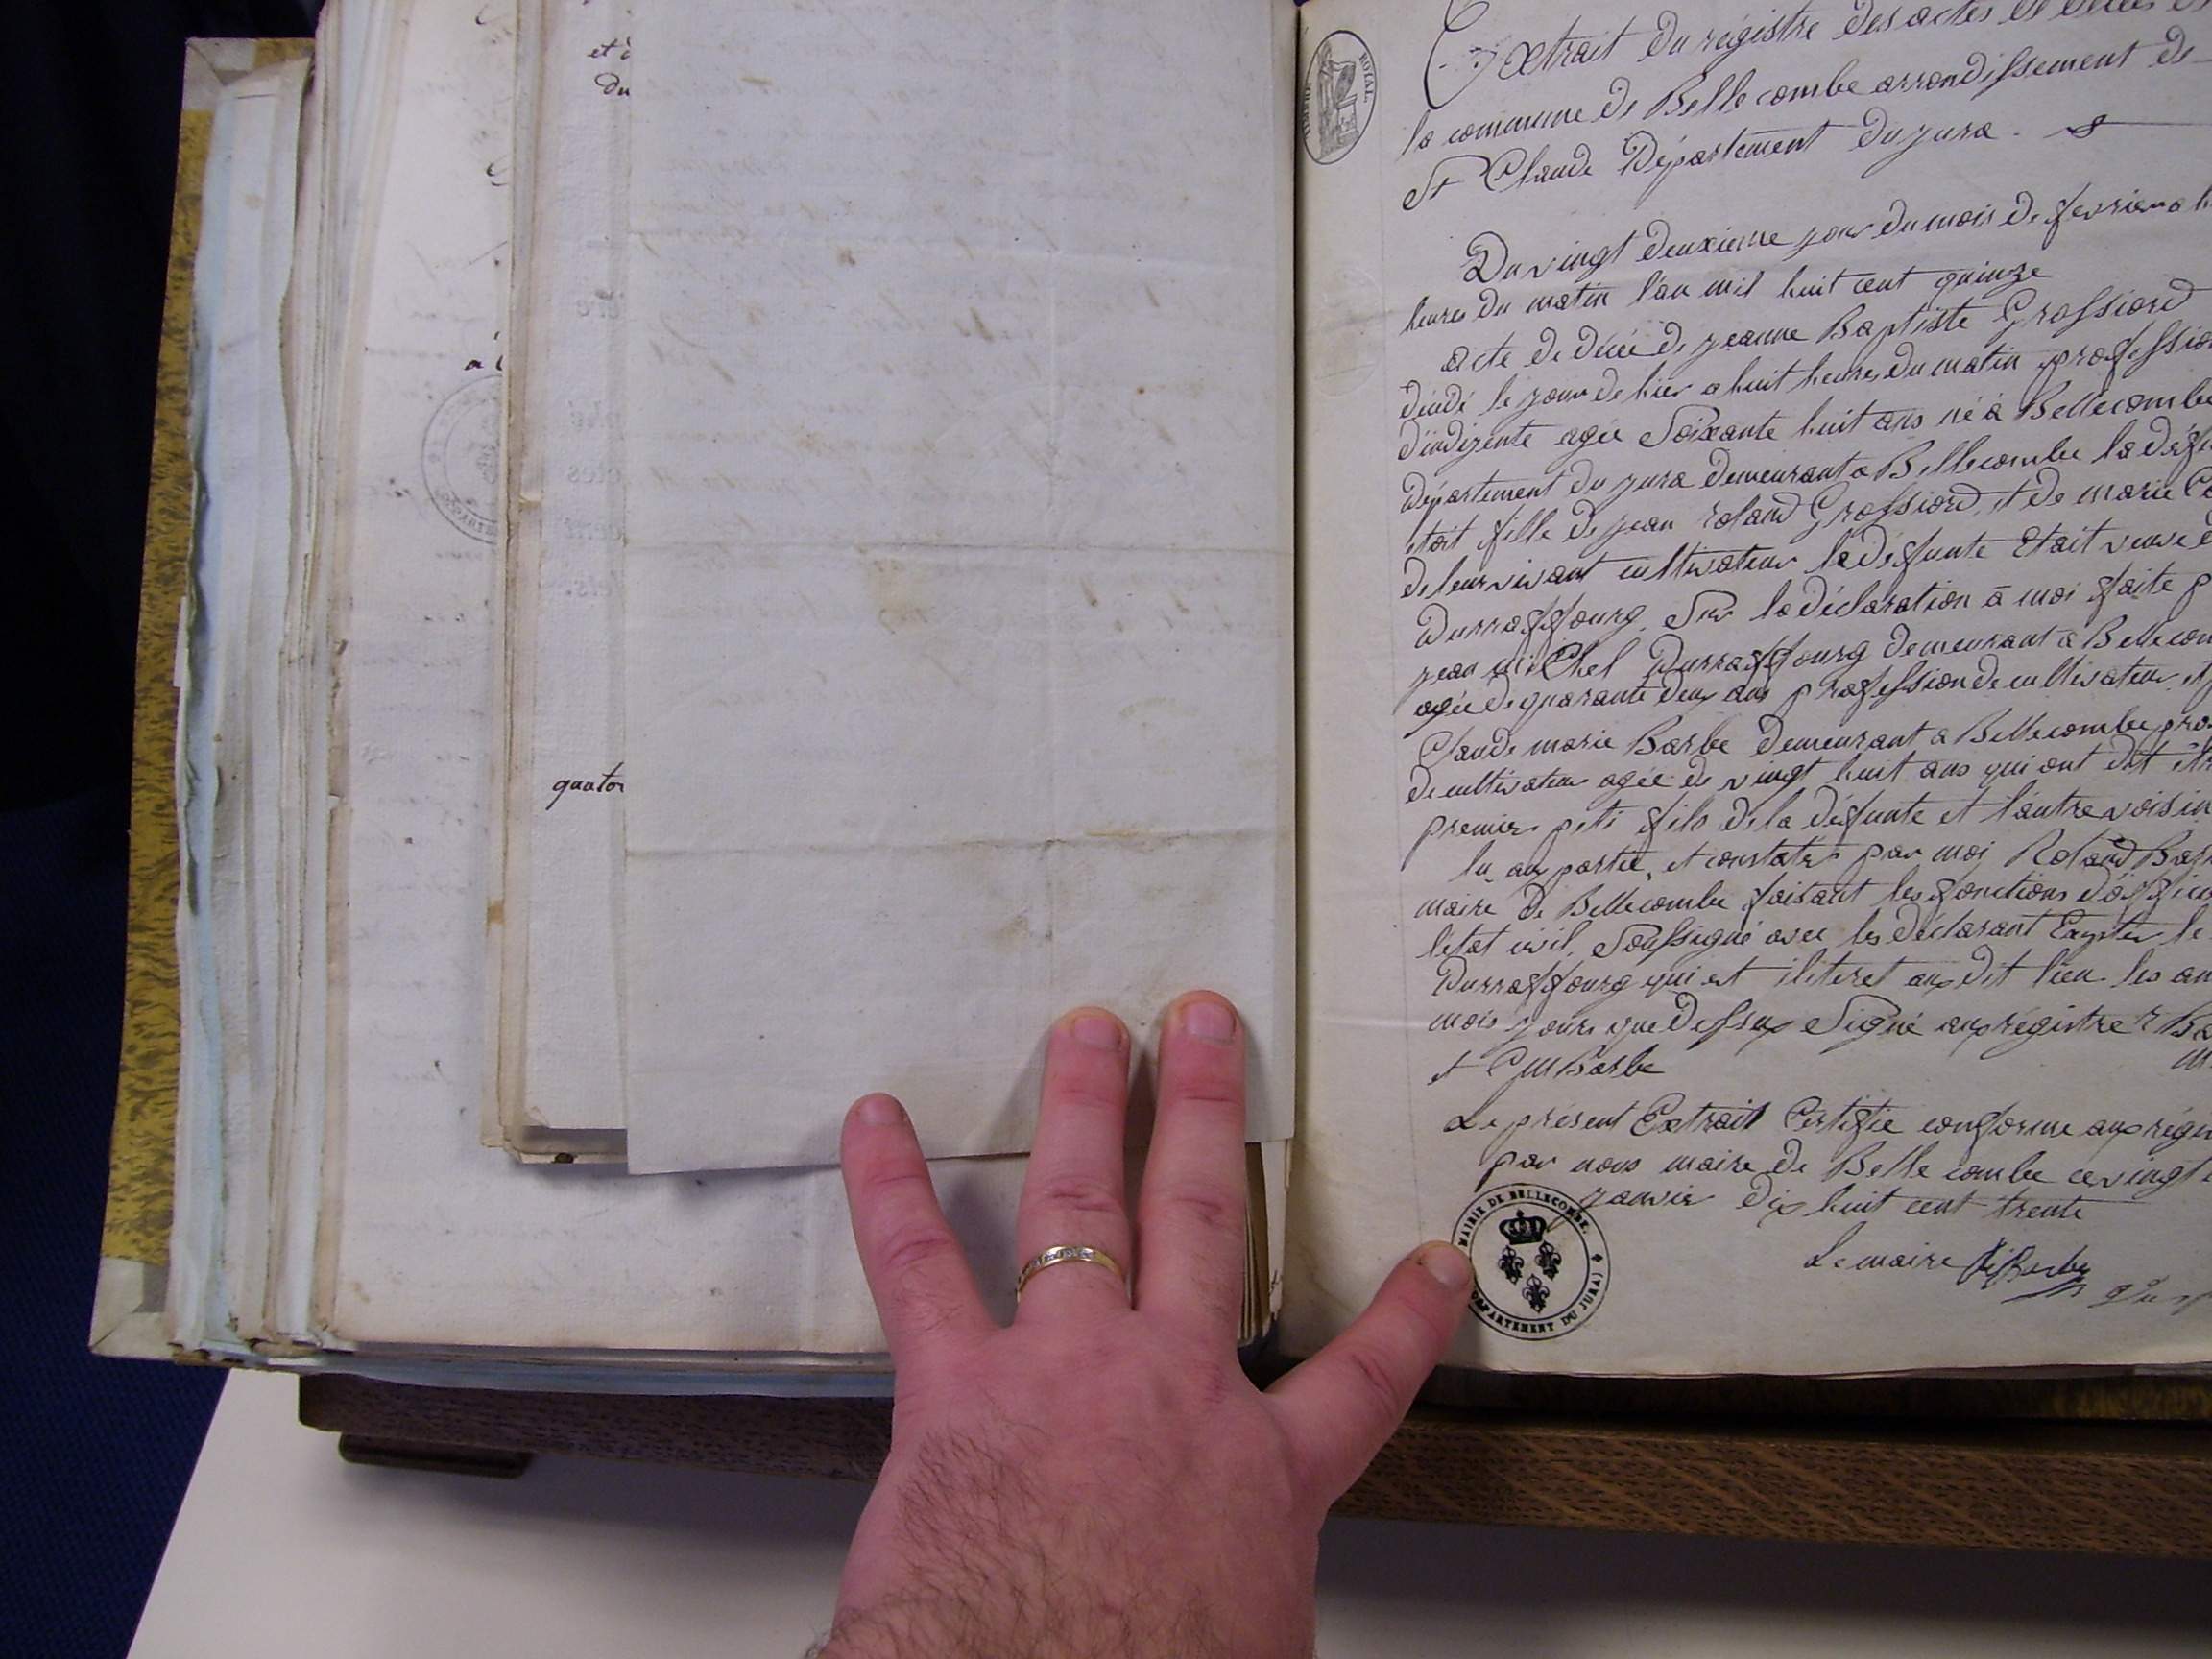 et d
du
à l
quator
TIMBRE ROYAL
Extrait du régistre des actes de décès de
la commune de Belle combe arrondissement de
St Claude Département du jura.
Du vingt deuxieme jour du mois de fevrier a
heures du matin l'an mil huit cent quinze
acte de décé de jeanne Baptiste Grossiord
décédé le jour de hier a huit heures du matin profession
d'indigente agée Soixante huit ans né à Bellecombe
département du jura demeurant a Bellecombe la défu
etoit fille de jean roland Grossiord et de marie
de leur vivant cultivateur la défunte Etait veuve
Durraffourg. Sur la déclaration à moi faite p
jean miChel Durraffourg demeurant à Bellecom
agée de quarante deux ans profession de cultivateur et
Claude marie Barbe demeurant a Bellecombe pro
de cultivateur agée de vingt huit ans qui ont dit être
premier petit fils de la défunte et l'autre voisin
lu aux partie, et constater par moi Roland Bar
maire de Bellecombe faisant les fonctions d'offici
l'état civil, Soussigné avec les déclarant Excepter le
Durraffourg qui est iliteret aux dit lieu les an
mois jours que dessus Signé aux régistre r Ba
et C m Barbe
m
Le présent Extrait Certifie conforme aux régis
par nous maire de Belle combe ce vingt
janvier dix huit cent trente
MAIRIE DE BELLECOMBE.
DÉPARTEMENT DU JURA)
Le maire Barbe